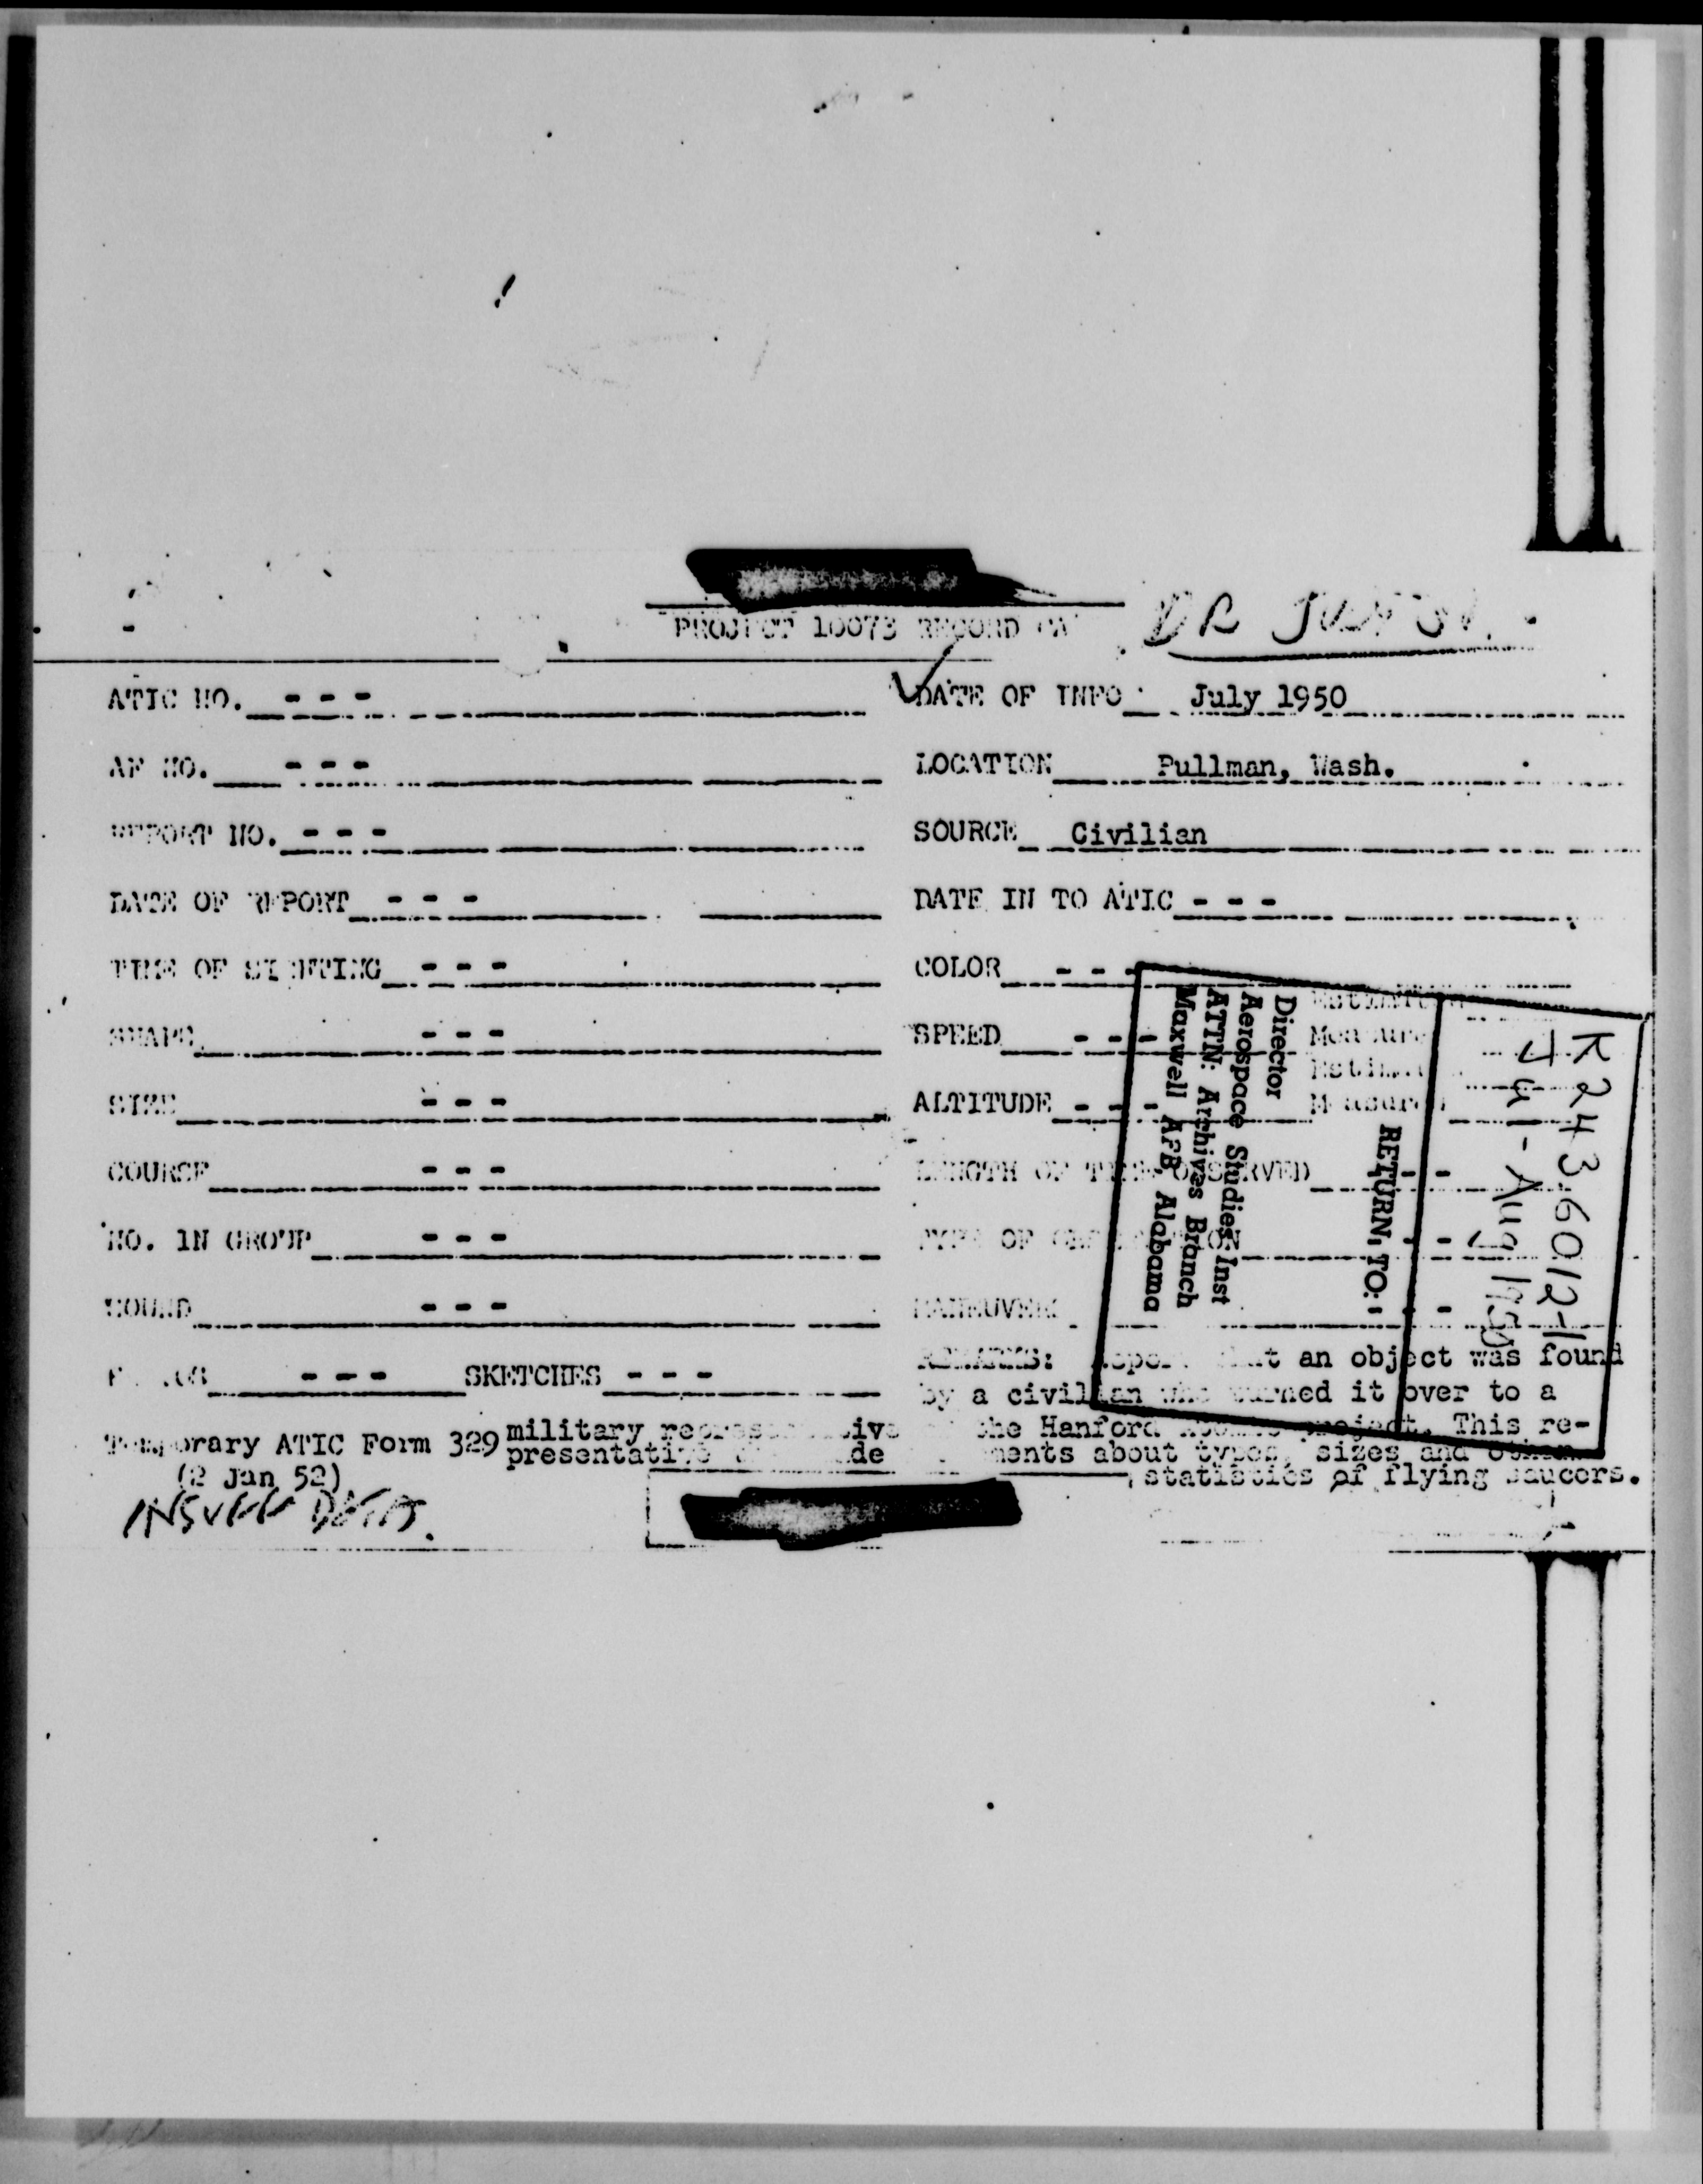 PROJECT 10073 RECORD CA
ATIC NO. - - -
DATE OF INFO July 1950
AF NO. - - -
LOCATION Pullman, Wash.
REPORT NO. - - -
SOURCE Civilian
DATE OF REPORT - - -
DATE IN TO ATIC - - -
TIME OF SIGHTING - - -
COLOR - - -
SHAPE - - -
SPEED - - -
SIZE - - -
ALTITUDE - - -
COURSE - - -
LENGTH OF TIME OBSERVED - -
NO. IN GROUP - - -
TYPE OF OBSERVATION - -
SOUND - - -
MANEUVER - - -
- - - SKETCHES - - -
REMARKS: Report that an object was found
by a civilian who turned it over to a
military representative the Hanford project. This re-
presentative ments about types, sizes and other
statistics of flying saucers.
Temporary ATIC Form 329
(2 Jan 52)
Director
Aerospace Studies Inst
ATTN: Archives Branch
Maxwell AFB Alabama
RETURN TO:
K243.6012-1
Jul-Aug 1950